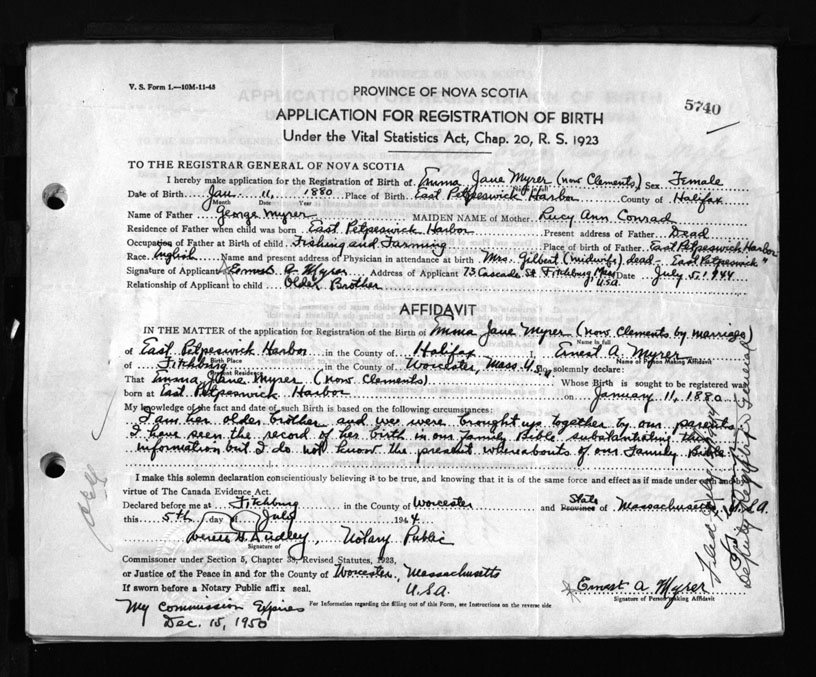 V. S. Form 1.—10M-11-43
PROVINCE OF NOVA SCOTIA
5740
APPLICATION FOR REGISTRATION OF BIRTH
Under the Vital Statistics Act, Chap. 20, R. S. 1923
TO THE REGISTRAR GENERAL OF NOVA SCOTIA
I hereby make application for the Registration of Birth of Emma Jane Myrer (now Clements) Sex Female
Name in full
Date of Birth Jan. 11, 1880 Place of Birth East Petpeswick Harbor County of Halifax
Month Date Year
Name of Father George Myrer MAIDEN NAME of Mother Lucy Ann Conrad
Residence of Father when child was born East Petpeswick Harbor Present address of Father Dead
Occupation of Father at Birth of child Fishing and Farming Place of birth of Father East Petpeswick Harbor
Race English Name and present address of Physician in attendance at birth Mrs. Gilbert (midwife) dead - East Petpeswick "
Signature of Applicant Ernest A Myrer Address of Applicant 73 Cascade St Fitchburg, Mass U.S.A. Date July 5, 1944
Relationship of Applicant to child Older Brother
AFFIDAVIT
IN THE MATTER of the application for Registration of the Birth of Emma Jane Myrer (now Clements by marriage)
Name in full
of East Petpeswick Harbor in the County of Halifax I, Ernest A. Myrer
Birth Place Name of Person Making Affidavit
of Fitchburg in the County of Worcester, Mass U.S.A. solemnly declare:
Present Residence
That Emma Jane Myrer (now Clements) Whose Birth is sought to be registered was
born at East Petpeswick Harbor on January 11, 1880
My knowledge of the fact and date of such Birth is based on the following circumstances:
I am her older brother and we were brought up together by our parents
I have seen the record of her birth in our family Bible substantiating this
information but I do not know the present whereabouts of our Family Bible
I make this solemn declaration conscientiously believing it to be true, and knowing that it is of the same force and effect as if made under oath and by
virtue of The Canada Evidence Act.
Declared before me at Fitchburg in the County of Worcester and State Province of Massachusetts, U.S.A.
this 5th day of July 1944
Dudley, Notary Public
Signature of
Commissioner under Section 5, Chapter 38, Revised Statutes, 1923,
or Justice of the Peace in and for the County of Worcester, Massachusetts
If sworn before a Notary Public affix seal. U.S.A.
Ernest A Myrer
Signature of Person Making Affidavit
For Information regarding the filling out of this Form, see Instructions on the reverse side
My Commission Expires
Dec. 15, 1950
Filed July
Deputy Registrar General